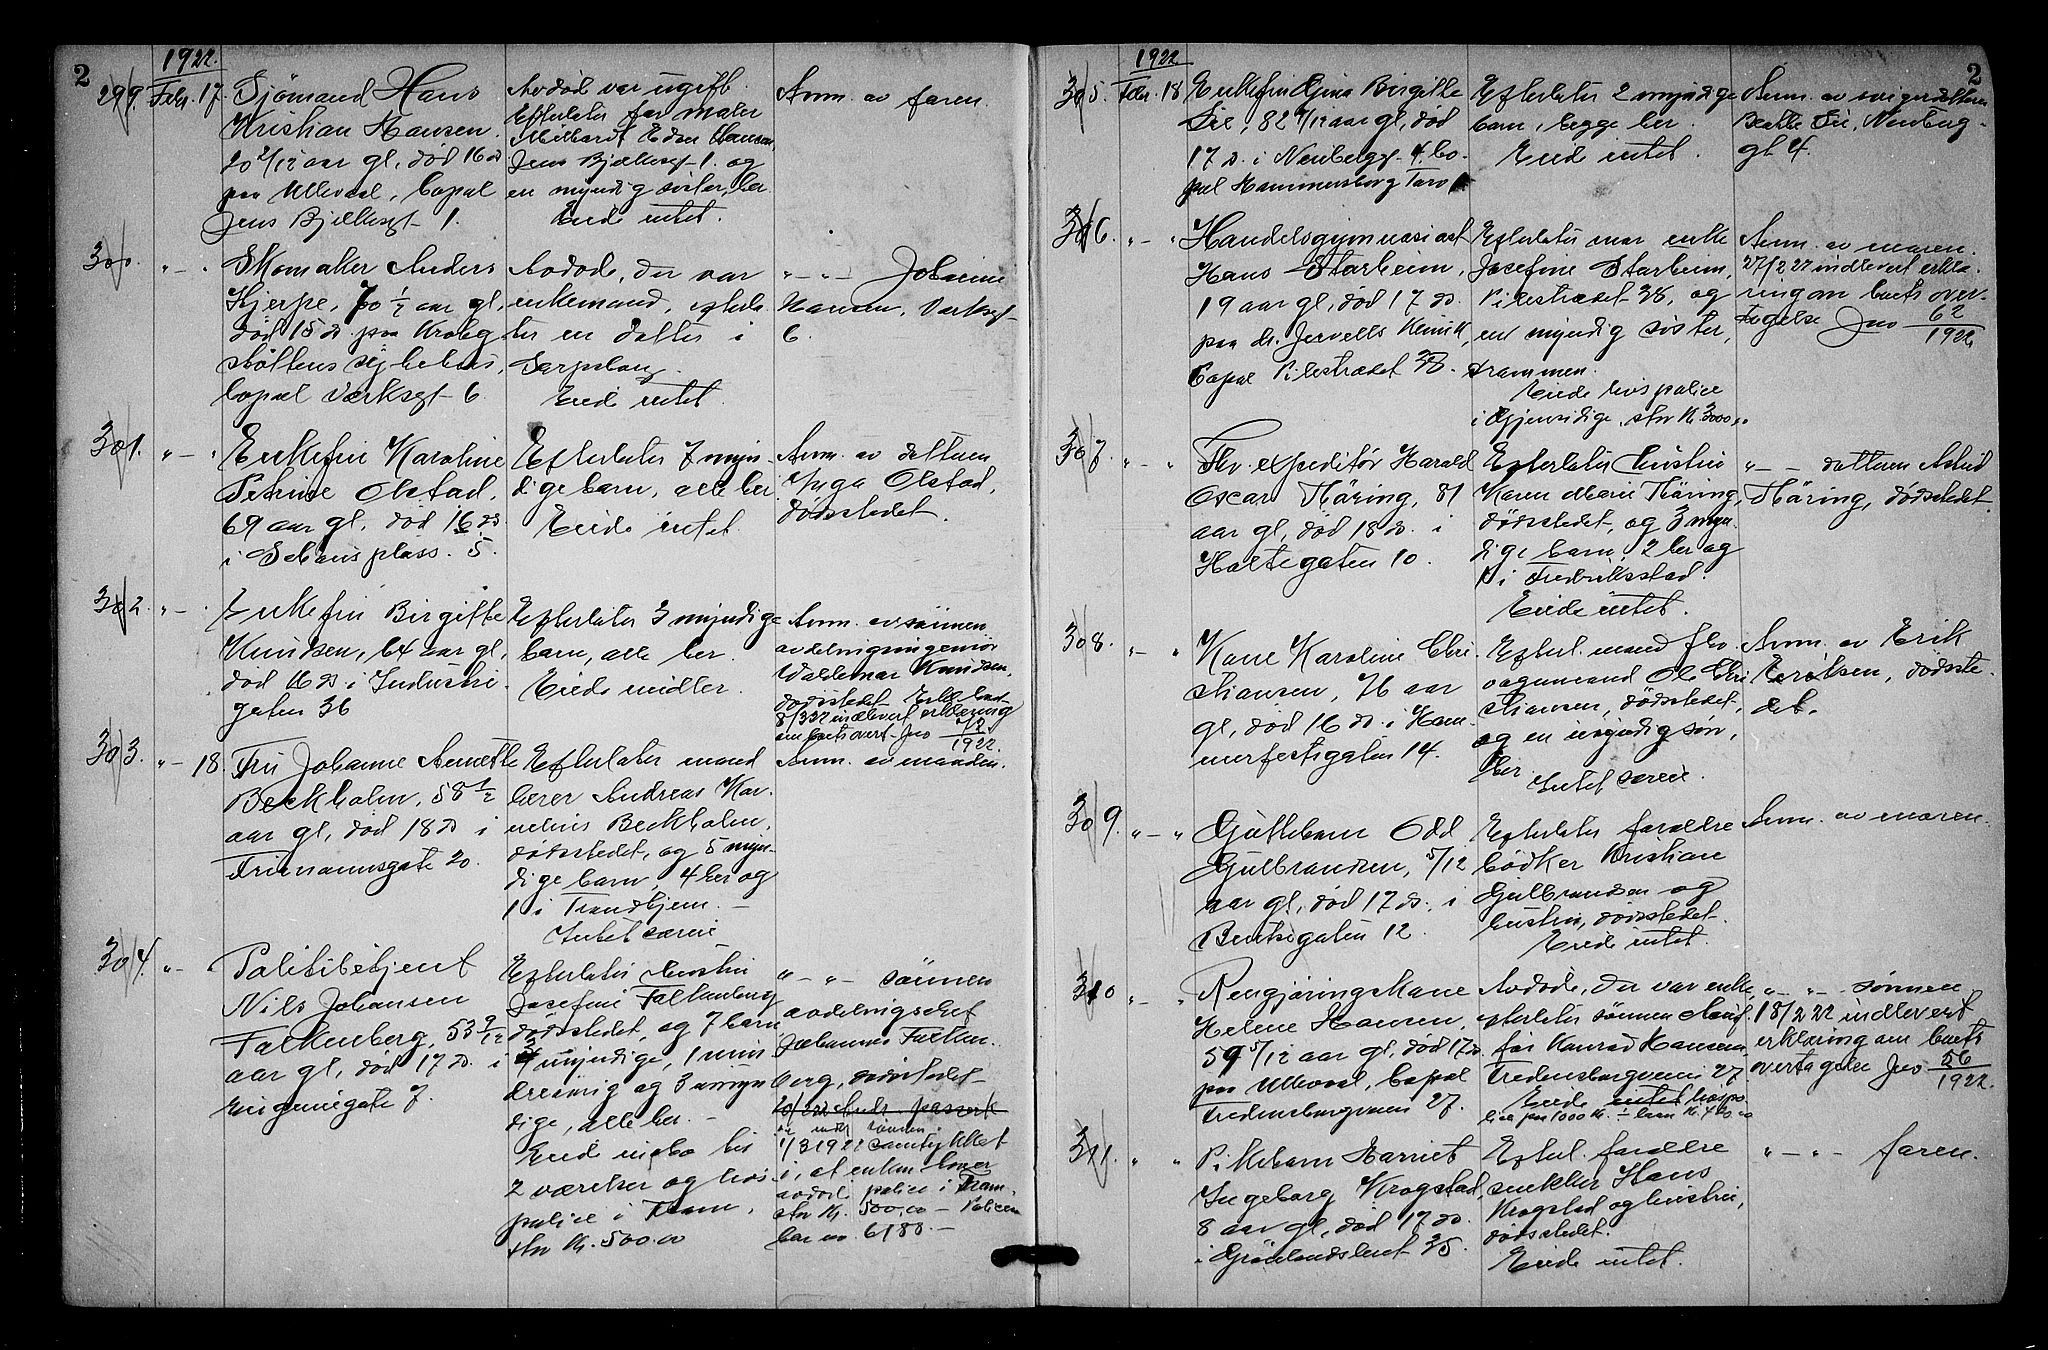 2
1922.
299. Febr. 17. Sjömand Hans
Kristian Hansen.
20 2/12 aar gl, död 16 ds
paa Ullevaal, bopæl
Jens Bjelkesgt 1.
Avdöd var ugift.
Efterlater far maler
Hansen,
Jens Bjelkesgt 1. og
en myndig söster, her
Eiede intet.
Anm. av faren.
300. " - " Skomaker Anders
Hjerpe, 70 1/2 aar gl,
död 15 ds. paa Krohg
stöttens sykehus,
bopæl Værksgt 6
Avdöde, der var
enkemand, efterla-
ter en datter i
Sarpsborg.
Eiede intet.
" - " - Johanne
Hansen, Værksgt
6.
301. " - " Enkefru Karoline
Petrine Olstad,
69 aar gl, död 16 ds.
i Schous plass. 5.
Efterlater 7 myn-
dige barn, alle her
Eiede intet.
Anm. av datteren
Olstad,
dödsstedet.
302. " - " Enkefru Birgitte
Knudsen, 64 aar gl,
död 16 ds i Industri-
gaten 36
Efterlater 3 myndige
barn, alle her.
Eiede midler.
Anm. av sönnen
avdelingsingeniör
Waldemar Knudsen,
dödsstedet.
8/3 22 indlevert erklæring
om boets overt. Jno 72/1922.
303. " - 18. Fru Johanne Annette
Beckholm, 58 1/2
aar gl, död 18 ds i
Frimannsgate 20.
Efterlater mand
lærer Andreas Kor-
nelius Beckholm,
dödsstedet, og 5 myn-
dige barn, 4 her og
1 i Trondhjem. -
Intet særeie
Anm. av manden.
304. " - " Politibetjent
Nils Johansen
Falkenberg, 53 9/12
aar gl, död 17 ds. i
Eugeniegate 7.
Efterlater hustru
Josefine Falkenberg,
dödsstedet, og 7 barn,
3 myndige, 1 min
dreaarig og 3 umyn
dige, alle her. -
Eiede indbo til
2 værelser og livs-
police i Fram,
stor Kr. 500.00
" - " - sönnen
avdelingschef
Johannes Falken-
berg, dödsstedet
1/3 1922 samtykket
i, at enken hæver
avdöd. police i Fram,
stor Kr. 500,00 - Policen
har no. 6188. -
2
1922
305. Febr. 18 Enkefru Gina Birgitte
Lie, 82 9/12 aar gl, död
17 ds. i Neuberggt 4, bo-
pæl Hammersborg Torv
Efterlater 2 myndige
barn, begge her.
Eiede intet.
Anm. av svigerdatteren
Lie, Neuberg-
gt 4.
306. " - " Handelsgymnasiast
Hans Starheim,
19 aar gl, död 17 ds.
paa dr. Jervells Klinik,
bopæl Pilestrædet 38.
Efterlater mor enke
Josefine Starheim,
Pilestrædet 38, og
en myndig söster,
Drammen.
Eiede livspolice
i Gjensidige, stor Kr. 3000,00
Anm. av moren.
27/2 22 indlevert erklæ-
ring om boets over-
tagelse Jno 62/1922
307. " - " Fhv. expeditör Harald
Oscar Thäring, 81
aar gl, död 18 ds. i
Holtegaten 10.
Efterlater hustru
Karen Marie Thäring,
dödsstedet, og 3 myn-
dige barn, 2 her og
1 i Fredriksstad.
Eiede intet.
" - - datteren Astrid
Thäring, dödsstedet.
308. " - " Kone Karoline Chri
stiansen, 76 aar
gl, död 16 ds. i Ham-
merfestgaten 14.
Efterl. mand fhv.
vognmand Ole Chri
stiansen, dödsstedet,
og en myndig sön,
her
Intet særeie.
Anm. av Erik
Eriksen, dödsste-
det.
309. " - " Guttebarn Odd
Gulbrandsen, 5/12
aar gl, död 17 ds. i
Bentsegaten 12.
Efterlater forældre
bödker Kristian
Gulbrandsen og
hustru, dödsstedet.
Eiede intet.
Anm. av moren.
310 " - " Rengjöringskone
Helene Hansen,
59 5/12 aar gl, död 17 ds.
paa Ullevaal, bopæl
Fredensborgveien 27.
Avdöde, der var enke,
efterlater sönnen
Konrad Hansen,
Fredensborgveien 27.
Eiede intet livspo-
lice paa 1000 Kr.
" - " - sönnen
18/2 22 indlevert
erklæring om boets
overtagelse Jno 56/1922.
311. " " Pikebarn Harriet
Ingeborg Krogstad,
8 aar gl, död 17 ds.
i Grönlandsleiret 35.
Efterl. forældre
snekker Hans
Krogstad og hustru,
dödsstedet.
Eiede intet.
" - " - faren.